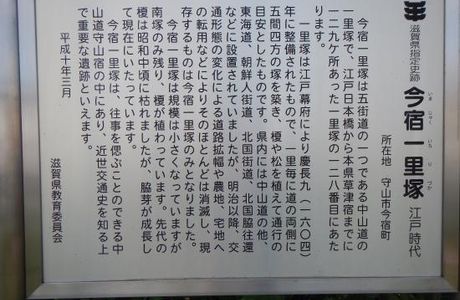 滋賀県指定史跡
今宿一里塚 江戸時代
いまじゅくいちりづか
所在地 守山市今宿町
今宿一里塚は五街道の一つである中山道の
一里塚で、江戸日本橋から本県草津宿までに
一二九ケ所あった一里塚の一二八番目にあた
ります。
一里塚は江戸幕府により慶長九(一六〇四)
年に整備されたもので、一里毎に道の両側に
五間四方の塚を築き、榎や松を植えて通行の
目安としたものです。県内には中山道の他、
東海道、朝鮮人街道、北国街道、北国脇往還
などに設置されていましたが、明治以降、交
通形態の変化による道路拡幅や農地、宅地へ
の転用などによりそのほとんどは消滅し、現
存するものは今宿一里塚のみとなりました。
今宿一里塚は規模は小さくなっていますが
南塚のみ残り、榎が植わっています。先代の
榎は昭和中頃に枯れましたが、脇芽が成長し
て現在にいたっています。
今宿一里塚は、往事を偲ぶことのできる中
山道守山宿の中にあり、近世交通史を知る上
で重要な遺跡といえます。
平成十年三月
滋賀県教育委員会